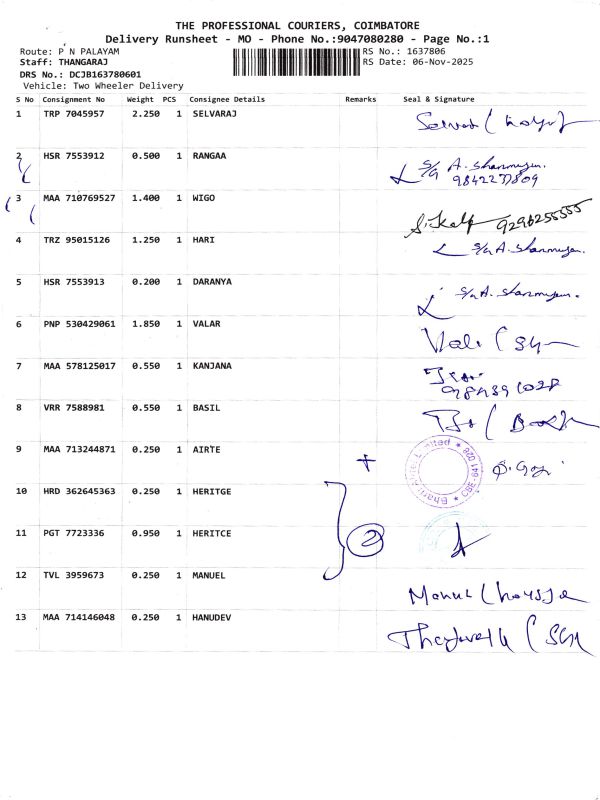 THE PROFESSIONAL COURIERS, COIMBATORE
Delivery Runsheet - MO - Phone No.:9047080280 - Page No.:1
Route: P N PALAYAM RS No.: 1637806
Staff: THANGARAJ RS Date: 06-Nov-2025
DRS No.: DCJB163780601
Vehicle: Two Wheeler Delivery
S No Consignment No Weight PCS Consignee Details Remarks Seal & Signature
1 TRP 7045957 2.250 1 SELVARAJ
2 HSR 7553912 0.500 1 RANGAA S/o A. Shanmugam.
3 MAA 710769527 1.400 1 WIGO 9296255555
4 TRZ 95015126 1.250 1 HARI
5 HSR 7553913 0.200 1 DARANYA
6 PNP 530429061 1.850 1 VALAR
7 MAA 578125017 0.550 1 KANJANA
8 VRR 7588981 0.550 1 BASIL
9 MAA 713244871 0.250 1 AIRTE
10 HRD 362645363 0.250 1 HERITGE
11 PGT 7723336 0.950 1 HERITCE 2
12 TVL 3959673 0.250 1 MANUEL
13 MAA 714146048 0.250 1 HANUDEV